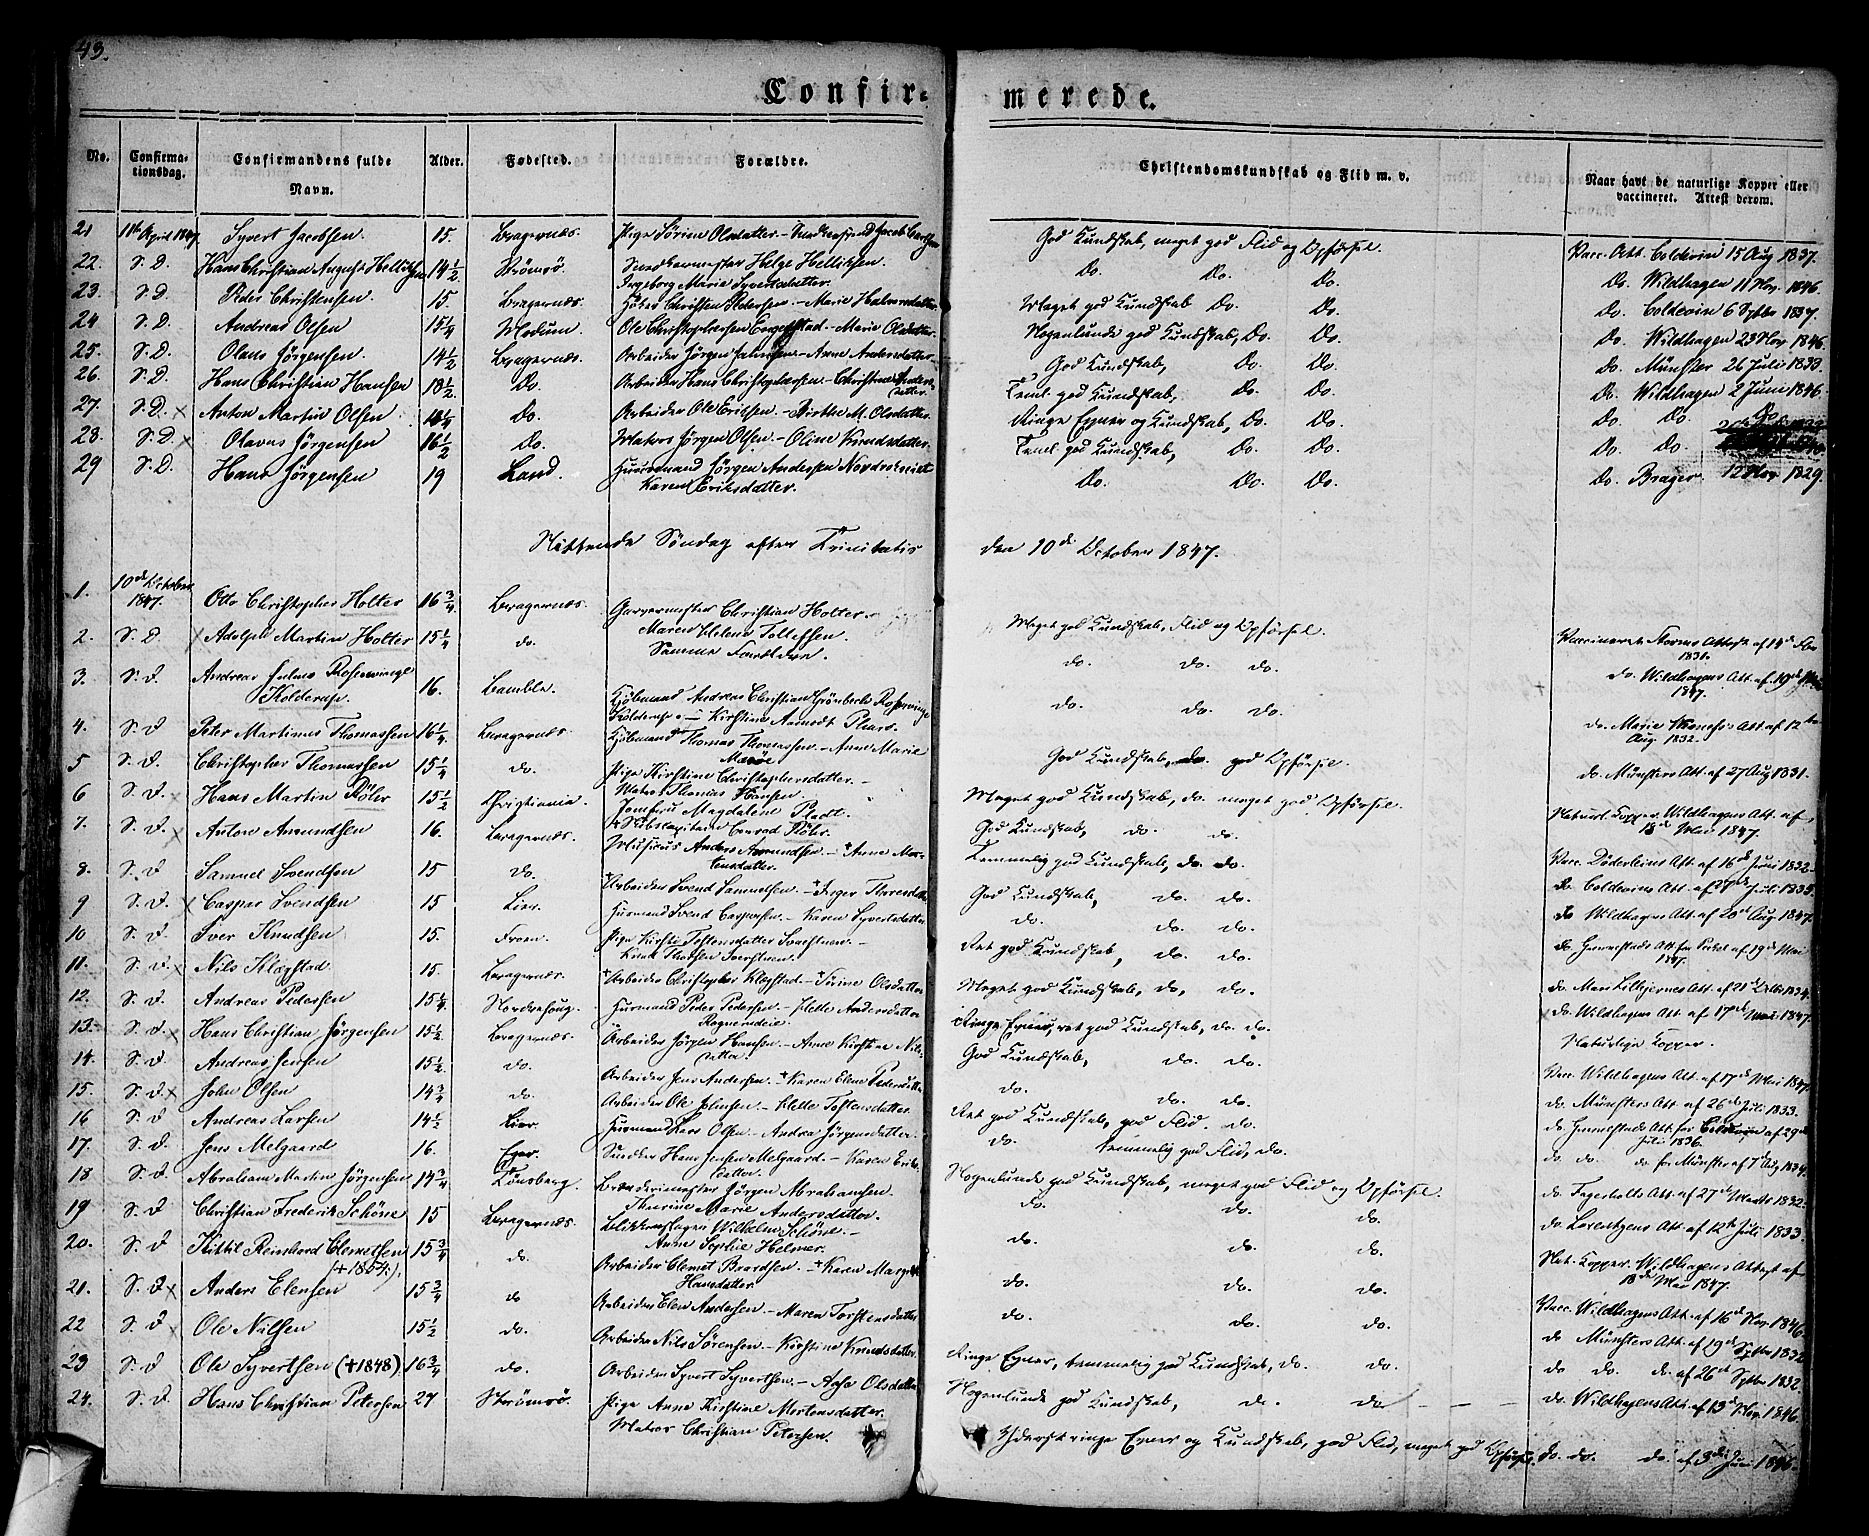 43.
Confirmerede.
No. Confirmationsdag. Confirmandens fulde Navn. Alder. Fødested. Forældre. Christendomskundskab og Flid m. v. Naar havt de naturlige Kopper eller vaccineret. Attest derom.
21 11te April 1847 Syvert Jacobsen 15. Bragernæs. Pige Sørine Olsdatter - God Kundskab, meget god Flid og Opførsel. Vacc. Att. Coldevin 15 Aug 1837.
22. S. D. Hans Christian August Hellichsen 14 1/2 Strømsö. Helge Hellichsen. Ingeborg Marie Syvertsdatter. Do. Do. Do. Do. Wildhagen 11 Nov. 1846.
23. S. D. Peder Christensen. 15. Bragernæs. Christen Pedersen - Marie Halvorsdatter. Meget god Kundskab Do. Do. Do. Coldevin 6 Septbr 1837.
24 S. D. Andreas Olsen 15 1/4 Modum. Ole Christophersen - Marie Olsdatter. Nogenlunde god Kundskab, Do. Do. Do. Wildhagen 23 Nov. 1846
25. S. D. Olaus Jørgensen. 14 1/2 Bragernæs. Arbeider Jørgen Johnsen - Anne Andersdatter God Kundskab, Do. Do. Do. Münster 26 Juli 1833.
26 S. D. Hans Christian Hansen 18 1/2 Do. Arbeider Hans Christophersen - Christine Andersdatter. Teml. god Kundskab, Do. Do. Do. Wildhagen 2 Juni 1846.
27. S. D. x Anton Martin Olsen Do. Arbeider Ole Erichsen - Birthe M. Olsdatter. Ringe Evner og Kundskab, Do. Do. Do. Do. Do.
28. S. D. x Olavus Jørgensen 16 1/2 Do. Matros Jørgen Olsen - Oline Knudsdatter. Teml. god Kundskab, Do. Do. Do. Do.
29 S. D. Hans Jørgensen 19 Land. Huusmand Jørgen Andersen Karen Eriksdatter. Do. Do. Do. Do. Brager 12 Nov 1829.
Nittende Søndag efter Trinitatis den 10de October 1847.
1. 10de October 1847. Otto Christopher Holter 16 3/4 Bragernæs. Garvermester Christian Holter. Maren Helene Tollefsen. Meget god Kundskab, Flid og Opførsel. Vaccineret Storms Attest af 14de 1831.
2. S. D. x Adolph Martin Holter 15 1/4 do. Samme Forældre. do. do. do. do. Wildhagens Att. af 19de 1847.
3. S. D. Andreas Julius Rosenvinge Kolderup 16. Bamble. Kjøbmand Andreas Christian Grønbech Rosenvinge Kolderup - Kirstine Aamodt do. do. do. do. Marie Att. af 12te Aug. 1832.
4. S. D Peter Martinus Thomassen 16 1/4 Bragernæs. Kjøbmand Thomas Thomassen - Anne Marie God Kundskab, do. god Opførsel. do. Münsters Att. af 27 Aug 1831.
5 S. D. Christopher Thomassen 15 1/4 do. Pige Kirstine Christophersdatter - Matros Thomas Hansen. Meget god Kundskab, do. meget god Opførsel. Naturl. Kopper. Wildhagens Att. af 18de Mai 1847.
6 S. D. x Hans Martin Röhr 15 1/2 Christiania. Jomfru Magdalene Pladt. Skibscapitain Conrad Röhr. God Kundskab, do. do. Vacc. Döderleins Att. af 16de Juni 1832.
7. S. D. x Anton Amundsen 16. Bragernæs. Musicus Anders Amundsen - Anne Mortensdatter Temmelig god Kundskab, do. do. do. Coldevins Att. af 27de Juli 1835.
8. S. D. Samuel Svendsen 15 do. Arbeider Svend Samuelsen - Inger Thoresdatter God Kundskab, do. do. do Wildhagens Att. af 20de Aug. 1847.
9 S. D. x Casper Svendsen 15 Lier. Huusmand Svend Caspersen - Karen Syvertsdatter do. do. do. do. Hennestads Att. for af 19de Mai 1847.
10 S. D. Iver Knudsen 15. Froen. Pige Kirsti Tostensdatter - Knud Ret god Kundskab, do. do.
11. S. D. x Nils Klagstad 15. Bragernæs. Arbeider Christopher Klagstad - Sirine Olsdatter Meget god Kundskab, do. do.
12. S. D. Andreas Pedersen 15 1/4 Nordrehoug. Huusmand Peder Pedersen - Helle Andersdatter
13. S. D. x Hans Christian Jørgensen 15 1/2 Bragernæs. Arbeider Jørgen Hansen - Anne Kirstine Nilsdatter Ringe Evner, ret god Kundskab, do. do. do. Wildhagens Att. af 17de Mai 1847.
14. S. D. Andreas Jensen 15 1/2 do. Arbeider Jens Andersen - Karen Elene Pedersdatter God Kundskab, do. do. Naturlige Kopper.
15. S. D. x John Olsen 14 3/4 do. Arbeider Ole Johnsen - Helle Tostensdatter. do. do. do. Vacc. Wildhagens Att. af 17de Mai 1847.
16 S. D Andreas Larsen 14 1/2 Lier. Huusmand Lars Olsen - Andrea Jørgensdatter. Ret god Kundskab, god Flid. do. do. Münsters Att. af 26de Juli 1833.
17. S. D. Jens Melgaard 16. Eger. Snedker Hans Jensen Melgaard - Karen Eriksdatter. do. temmelig god Flid, do. do. Hennestads Att. for Coldevin af 29de Juli 1836.
18 S. D. Abraham Martin Jørgensen 14 3/4 Tönsberg. Brænderimester Jørgen Abrahamsen. Thurine Marie Andersdatter. Nogenlunde god Kundskab, meget god Flid og Opførsel. do. do. do. for Münster af 7de Aug 1834.
19 S. D Christian Frederik Schöne 15 Bragernæs. Blikkenslager Wilhelm Schöne - Anne Sophie Helmer. do. do. do. do. Fagerholts Att. af 27de Marts 1832.
20. S. D Kittil Reinhard Clemetsen (+1854.) 15 3/4 do. Arbeider Clemet Baardsen - Karen Margrethe Hansdatter do. do. do. do. Lorentzens Att. af 12te Juli 1833.
21. S. D x Anders Elensen 15 3/4 do Arbeider Elen Andersen - Maren Torstensdatter do. do. do. Nat. Kopper. Wildhagens Attest af 18de Mai 1847.
22 S. D x Ole Nilsen 15 1/2 do. Arbeider Nils Sørensen - Kirstine Knudsdatter. do. do. do. Vacc. Wildhagens Att. af 16de Nov. 1846
23 S. D Ole Syvertsen (+1848) 16 3/4 do. Arbeider Syvert Syvertsen - Aase Olsdatter Ringe Evner, temmelig god Kundskab, do. do. do Münsters Att. af 19de Septbr 1832
24. S. D. Hans Christian Petersen 27 Strömsö. Pige Anne Kirstine Mortensdatter. Matros Christian Petersen. Nogenlunde god Kundskab, do. do do do. do. af 26de Septbr 1832.
do. Wildhagens Att. af 13de Nov. 1846
Yderst ringe Evner og Kundskab, god Flid, meget god Opførsel. do. do. do. af 3die Juni 1846.